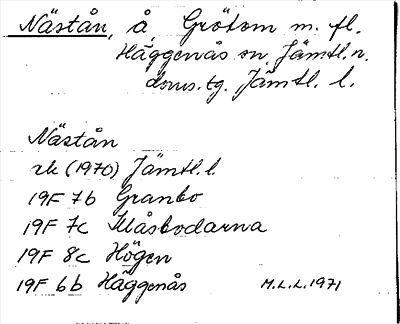 Nästån, å, Grötom m. fl.
Häggenås sn, Jämtl. n.
doms.tg. Jämtl. l.
Nästån
rk (1970) Jämtl. l.
19F 7b Granbo
19F 7c Måsbodarna
19F 8c Högen
19F 6b Häggenås M.L.L. 1971